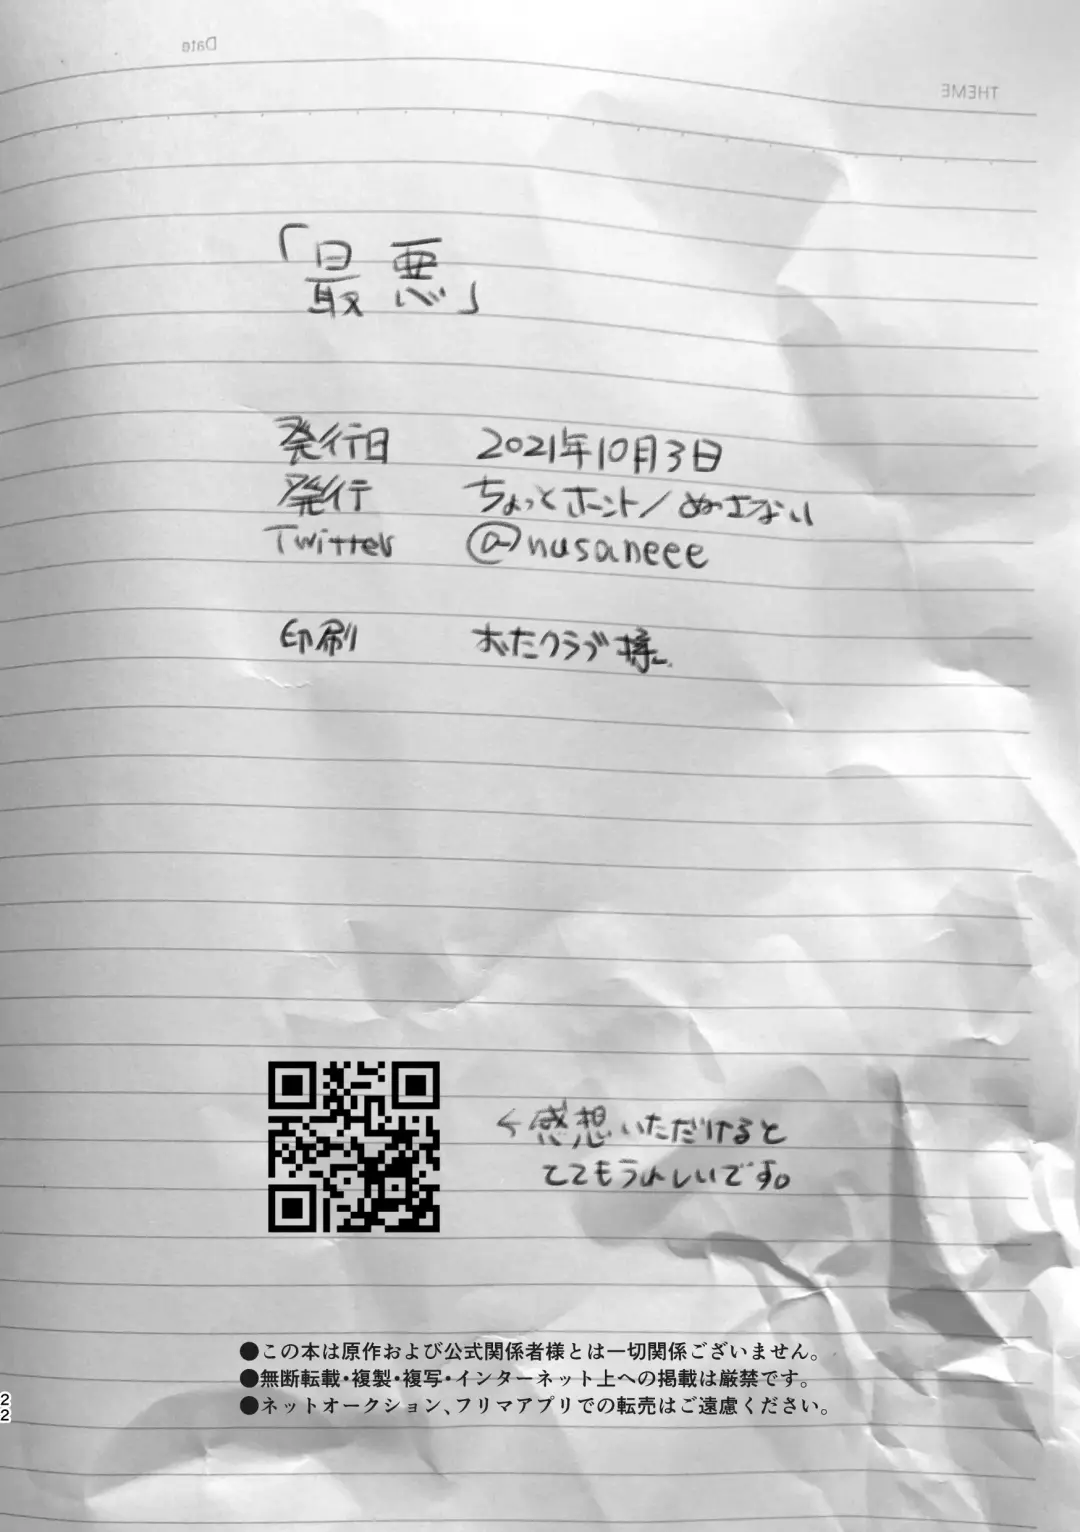 Date
THEME
「最悪」
発行日 2021年10月3日
発行 ちょっとホーント/ぬさない
Twitter @nusaneee
印刷 おたクラブ様
←感想いただけると
とてもうれしいです。
●この本は原作および公式関係者様とは一切関係ございません。
●無断転載・複製・複写・インターネット上への掲載は厳禁です。
●ネットオークション、フリマアプリでの転売はご遠慮ください。
22